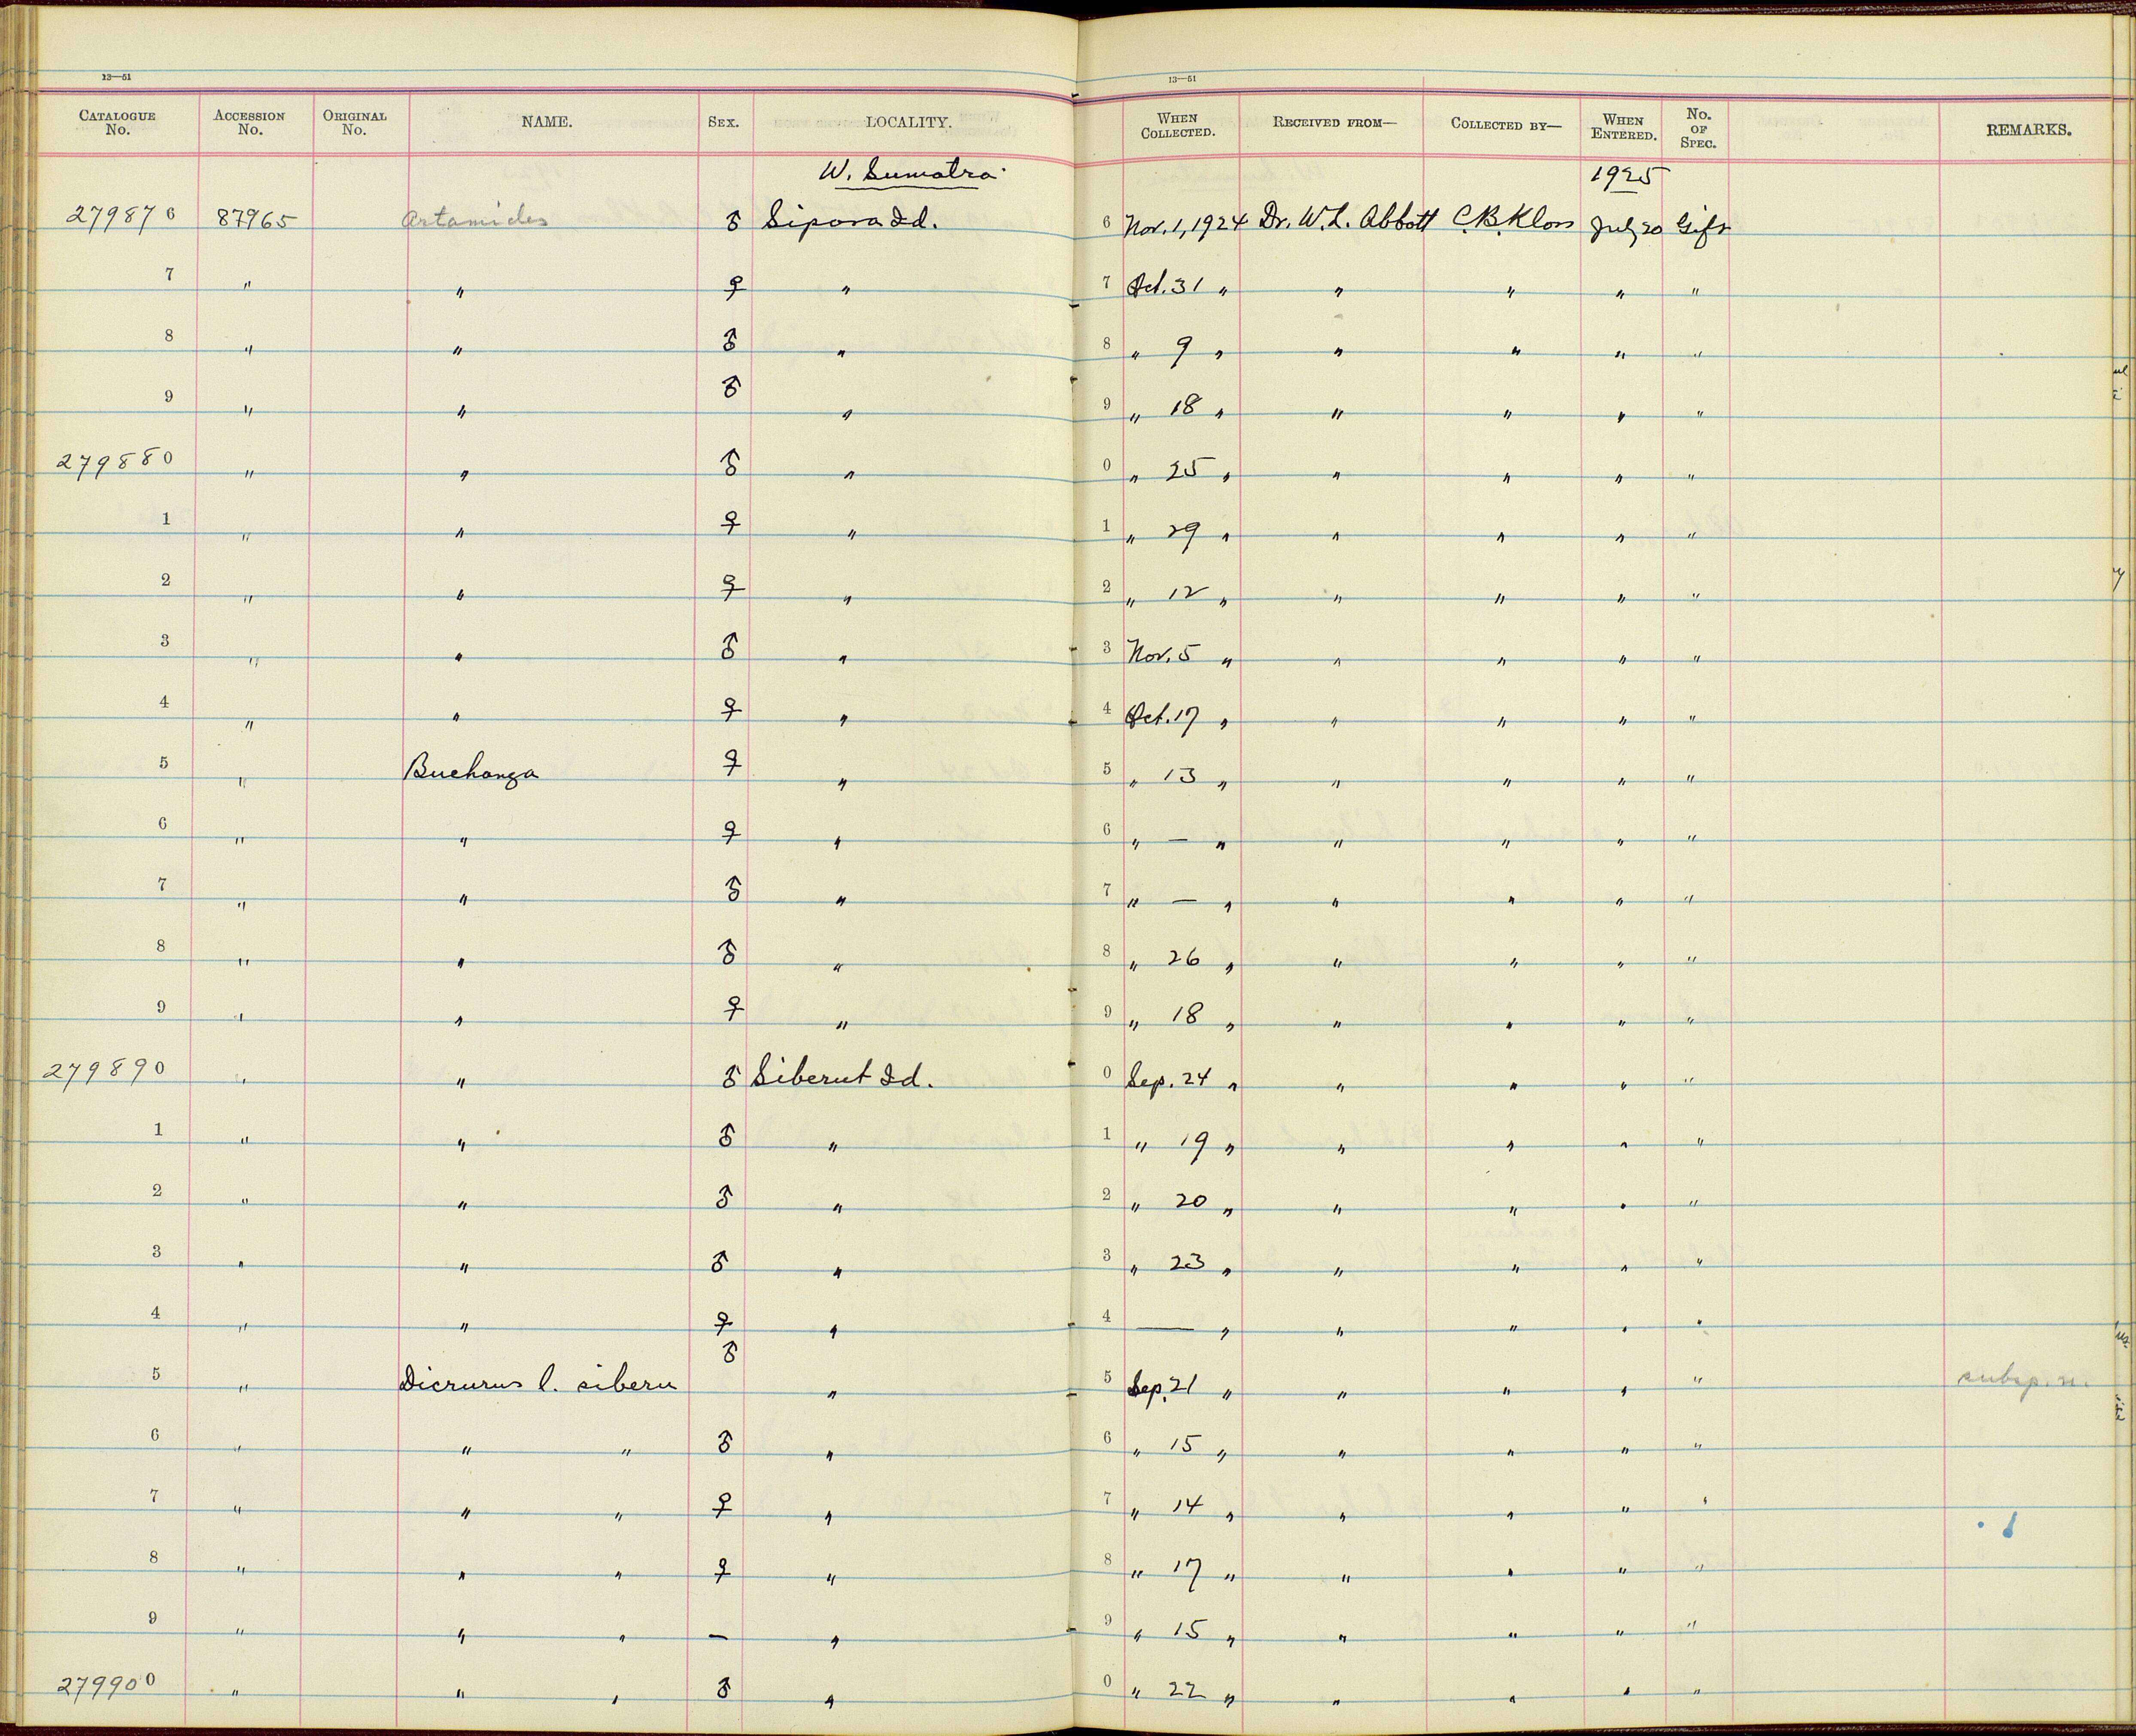 13—51 13—51
CATALOGUE No. ACCESSION No. ORIGINAL No. NAME. SEX. LOCALITY. WHEN COLLECTED. RECEIVED FROM— COLLECTED BY— WHEN ENTERED. No. OF SPEC. REMARKS.
W. Sumatra 1925
279876 87965 Artamides ♂ Sipora Id. 6 Nov. 1, 1924 Dr. W. L. Abbott C. B. Kloss July 20 Gift
7 " " ♀ " 7 Oct. 31 " " " " "
8 " " ♂ " 8 " 9 " " " " "
9 " " ♂ " 9 " 18 " " " " "
279880 " " ♂ " 0 " 25 " " " " "
1 " " ♀ " 1 " 29 " " " " "
2 " " ♀ " 2 " 12 " " " " "
3 " " ♂ " 3 Nov. 5 " " " " "
4 " " ♀ " 4 Oct. 17 " " " " "
5 " Buchanga ♀ " 5 " 13 " " " " "
6 " " ♀ " 6 " — " " " " "
7 " " ♂ " 7 " — " " " " "
8 " " ♂ " 8 " 26 " " " " "
9 " " ♀ " 9 " 18 " " " " "
279890 " " ♂ Siberut Id. 0 Sep. 24 " " " " "
1 " " ♂ " 1 " 19 " " " " "
2 " " ♂ " 2 " 20 " " " " "
3 " " ♂ " 3 " 23 " " " " "
4 " " ♀ " 4 — " " " " "
5 " Dicrurus l. siberu ♂ " 5 Sep. 21 " " " " " subsp. n.
6 " " " ♂ " 6 " 15 " " " " "
7 " " " ♀ " 7 " 14 " " " " "
8 " " " ♀ " 8 " 17 " " " " "
9 " " " — " 9 " 15 " " " " "
279900 " " " ♂ " 0 " 22 " " " " "